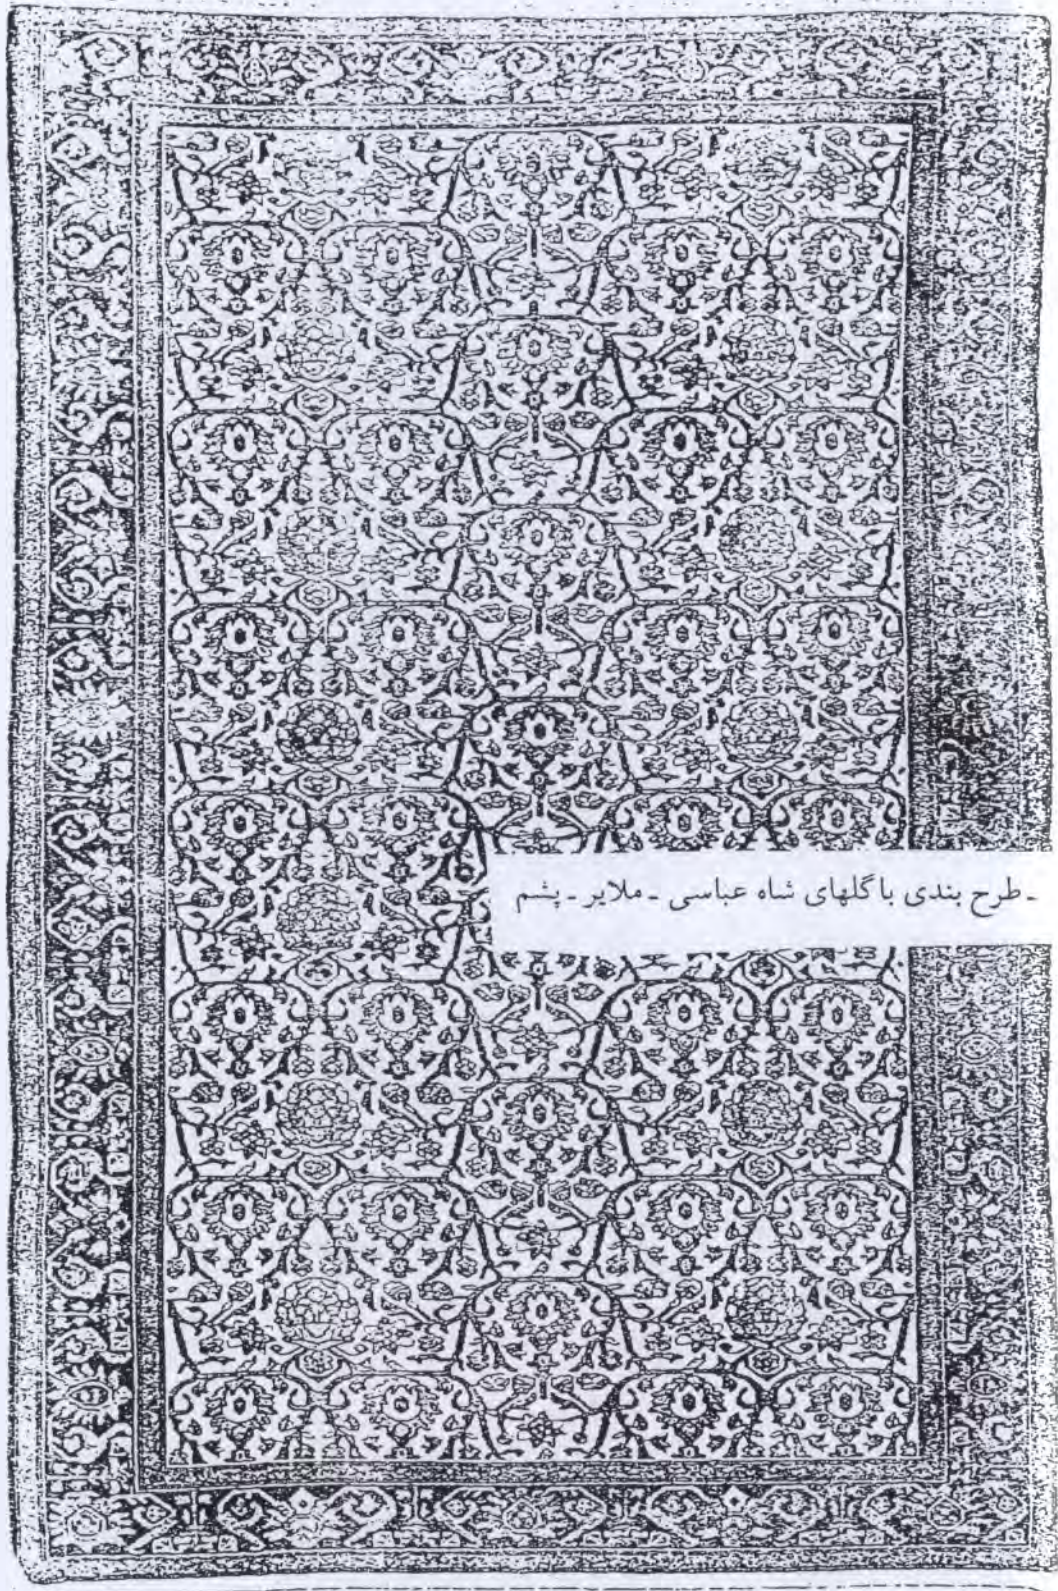 ـ طرح بندی با گلهای شاه عباسی ـ ملایر ـ پشم